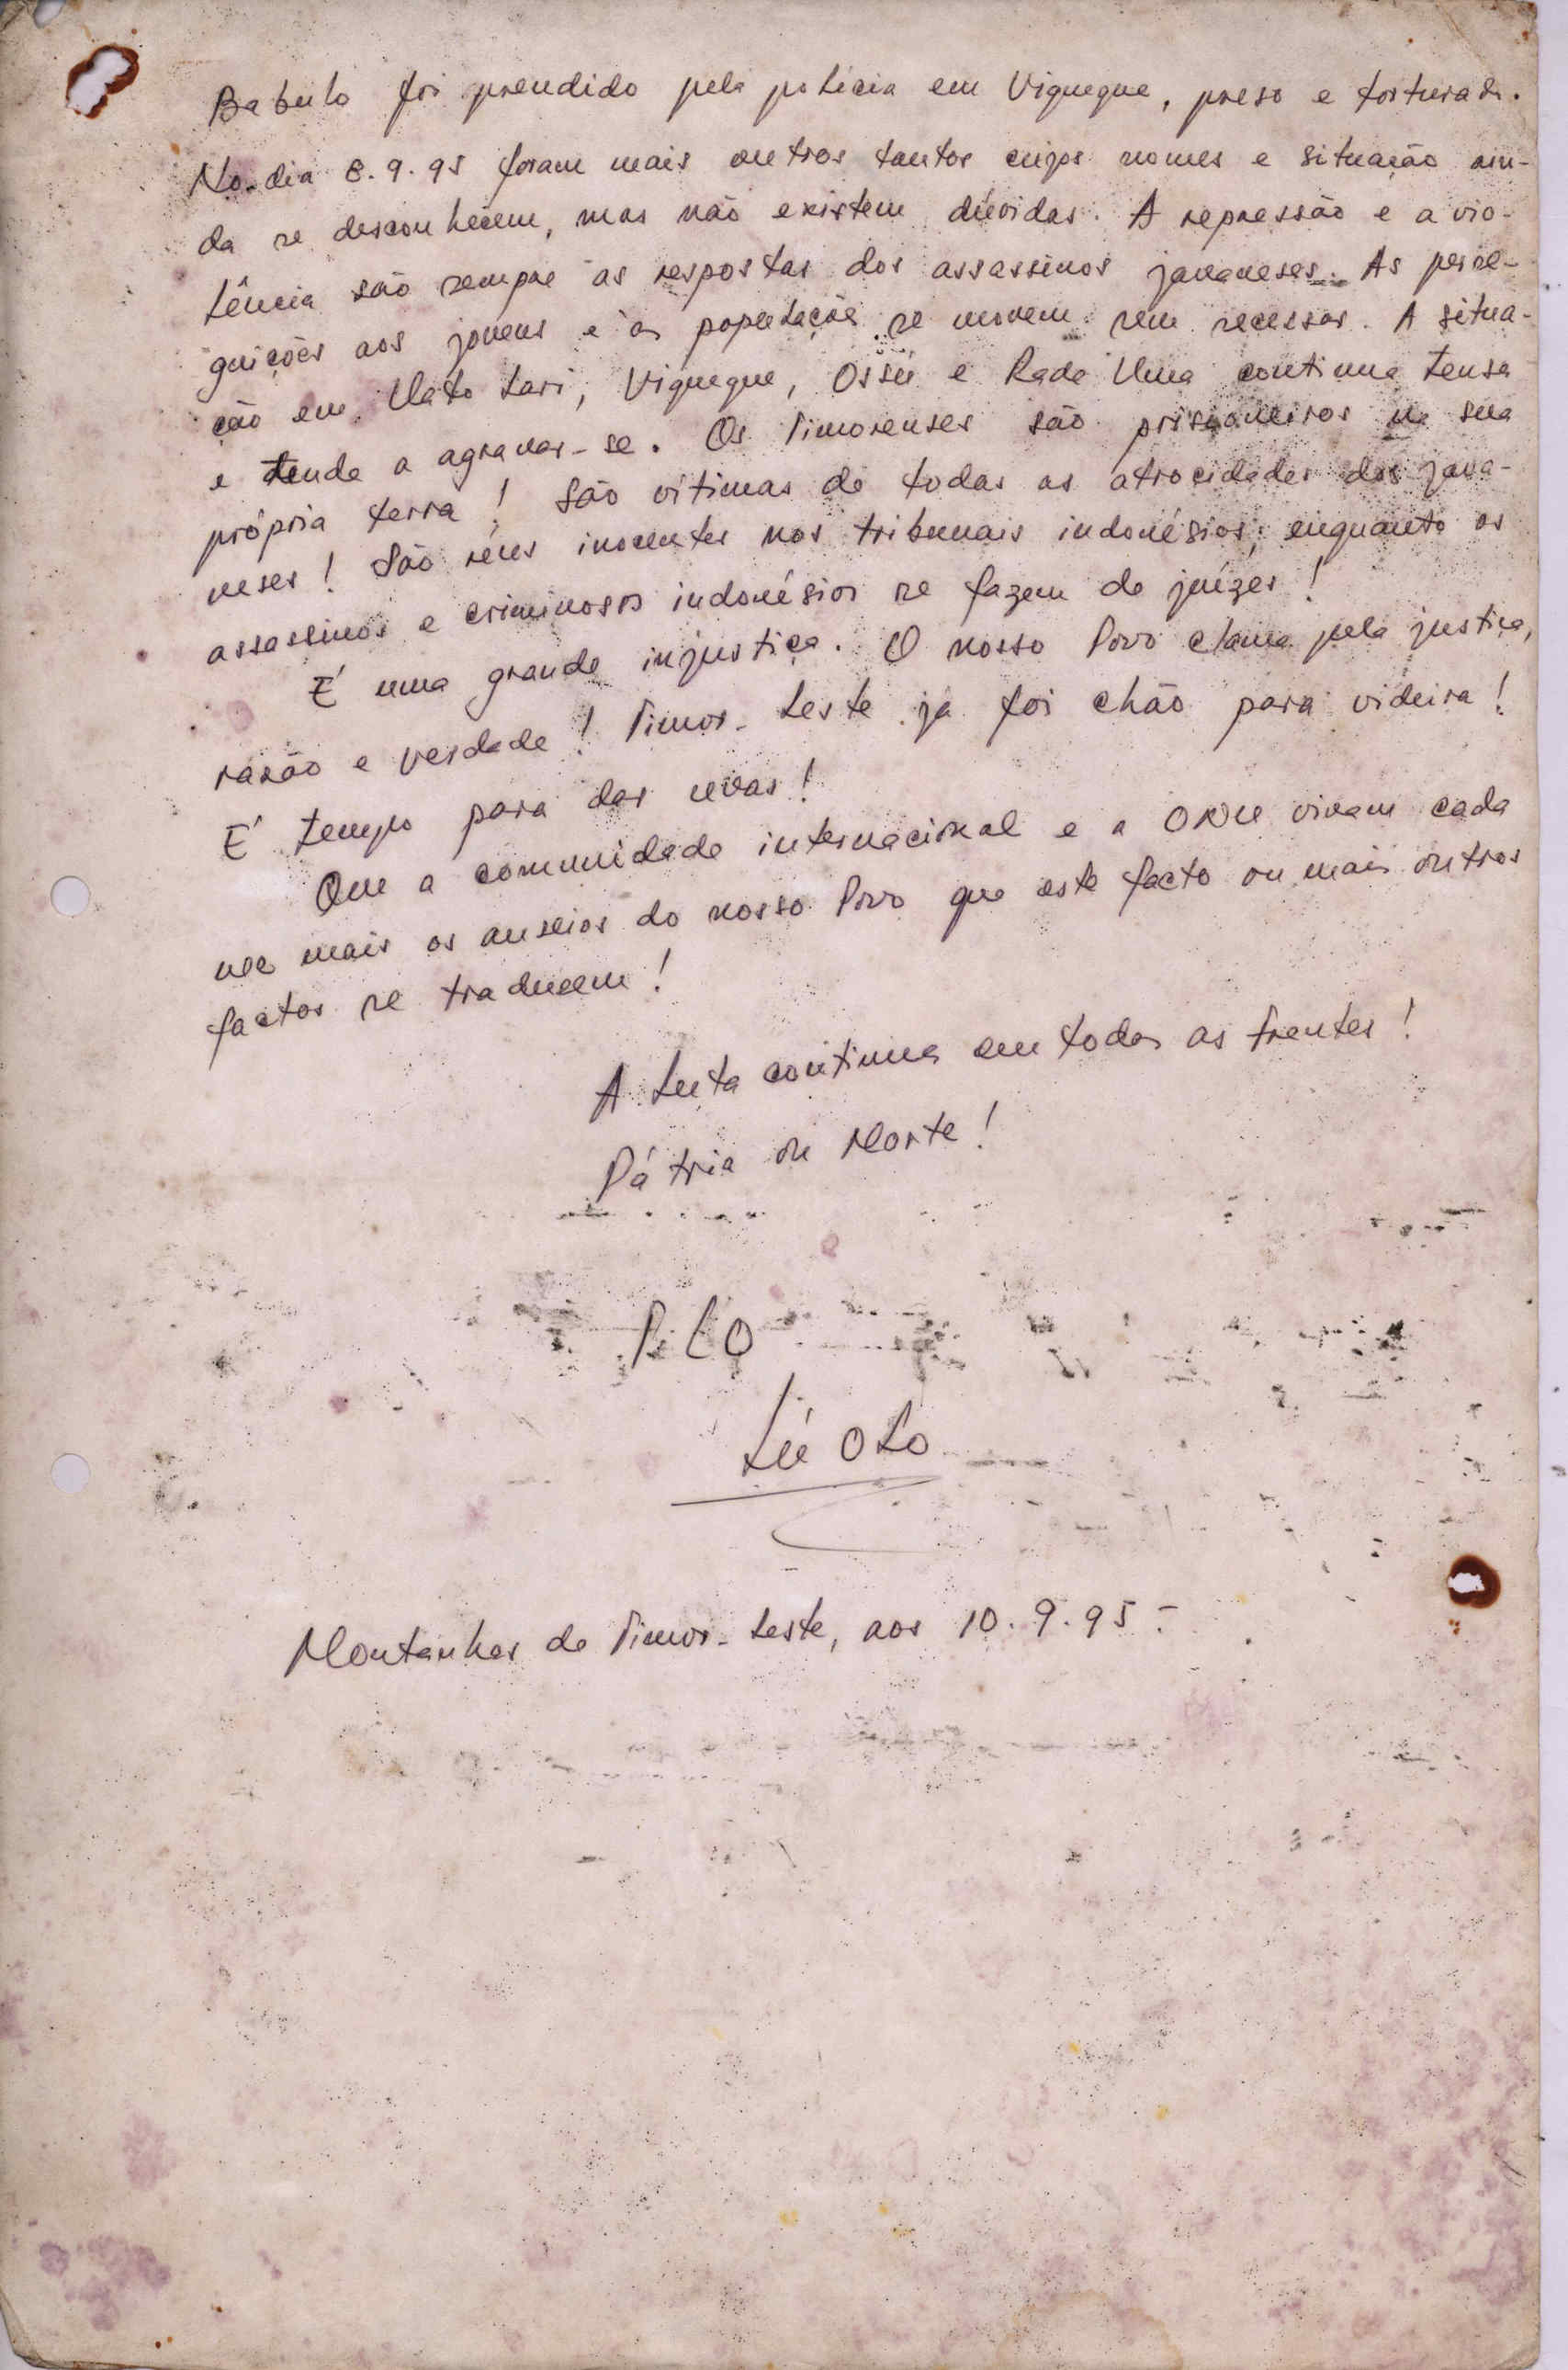 Babulo foi prendido pela polícia em Viqueque, preso e torturado.
No dia 8.9.95 foram mais outros tantos cujos nomes e situação ain-
da se desconhecem, mas não existem dúvidas. A repressão e a vio-
lência são sempre as respostas dos assassinos javaneses. As perse-
guições aos jovens e às populações se movem sem cessar. A situa-
ção em Uato Lari, Viqueque, Ossú e Rade Uma continua tensa
e tende a agravar-se. Os Timorenses são prisioneiros na sua
própria terra! São vítimas de todas as atrocidades dos java-
neses! São réus inocentes nos tribunais indonésios, enquanto os
assassinos e criminosos indonésios se fazem de juízes!
É uma grande injustiça. O nosso Povo clama pela justiça,
razão e verdade! Timor-Leste já foi chão para videira!
É tempo para dar uvas!
Que a comunidade internacional e a ONU vivam cada
vez mais os anseios do nosso Povo que este facto ou mais outros
factos se traduzem!
A Luta continua em todas as frentes!
Pátria ou Morte!
Lú OLo
Montanhas de Timor-Leste, aos 10.9.95